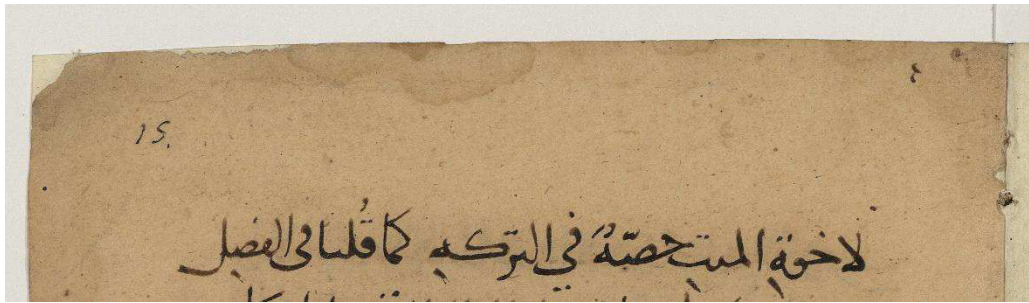 15.
لاخوة الميت حصّةٌ في التركه كما قُلنا في الفصل